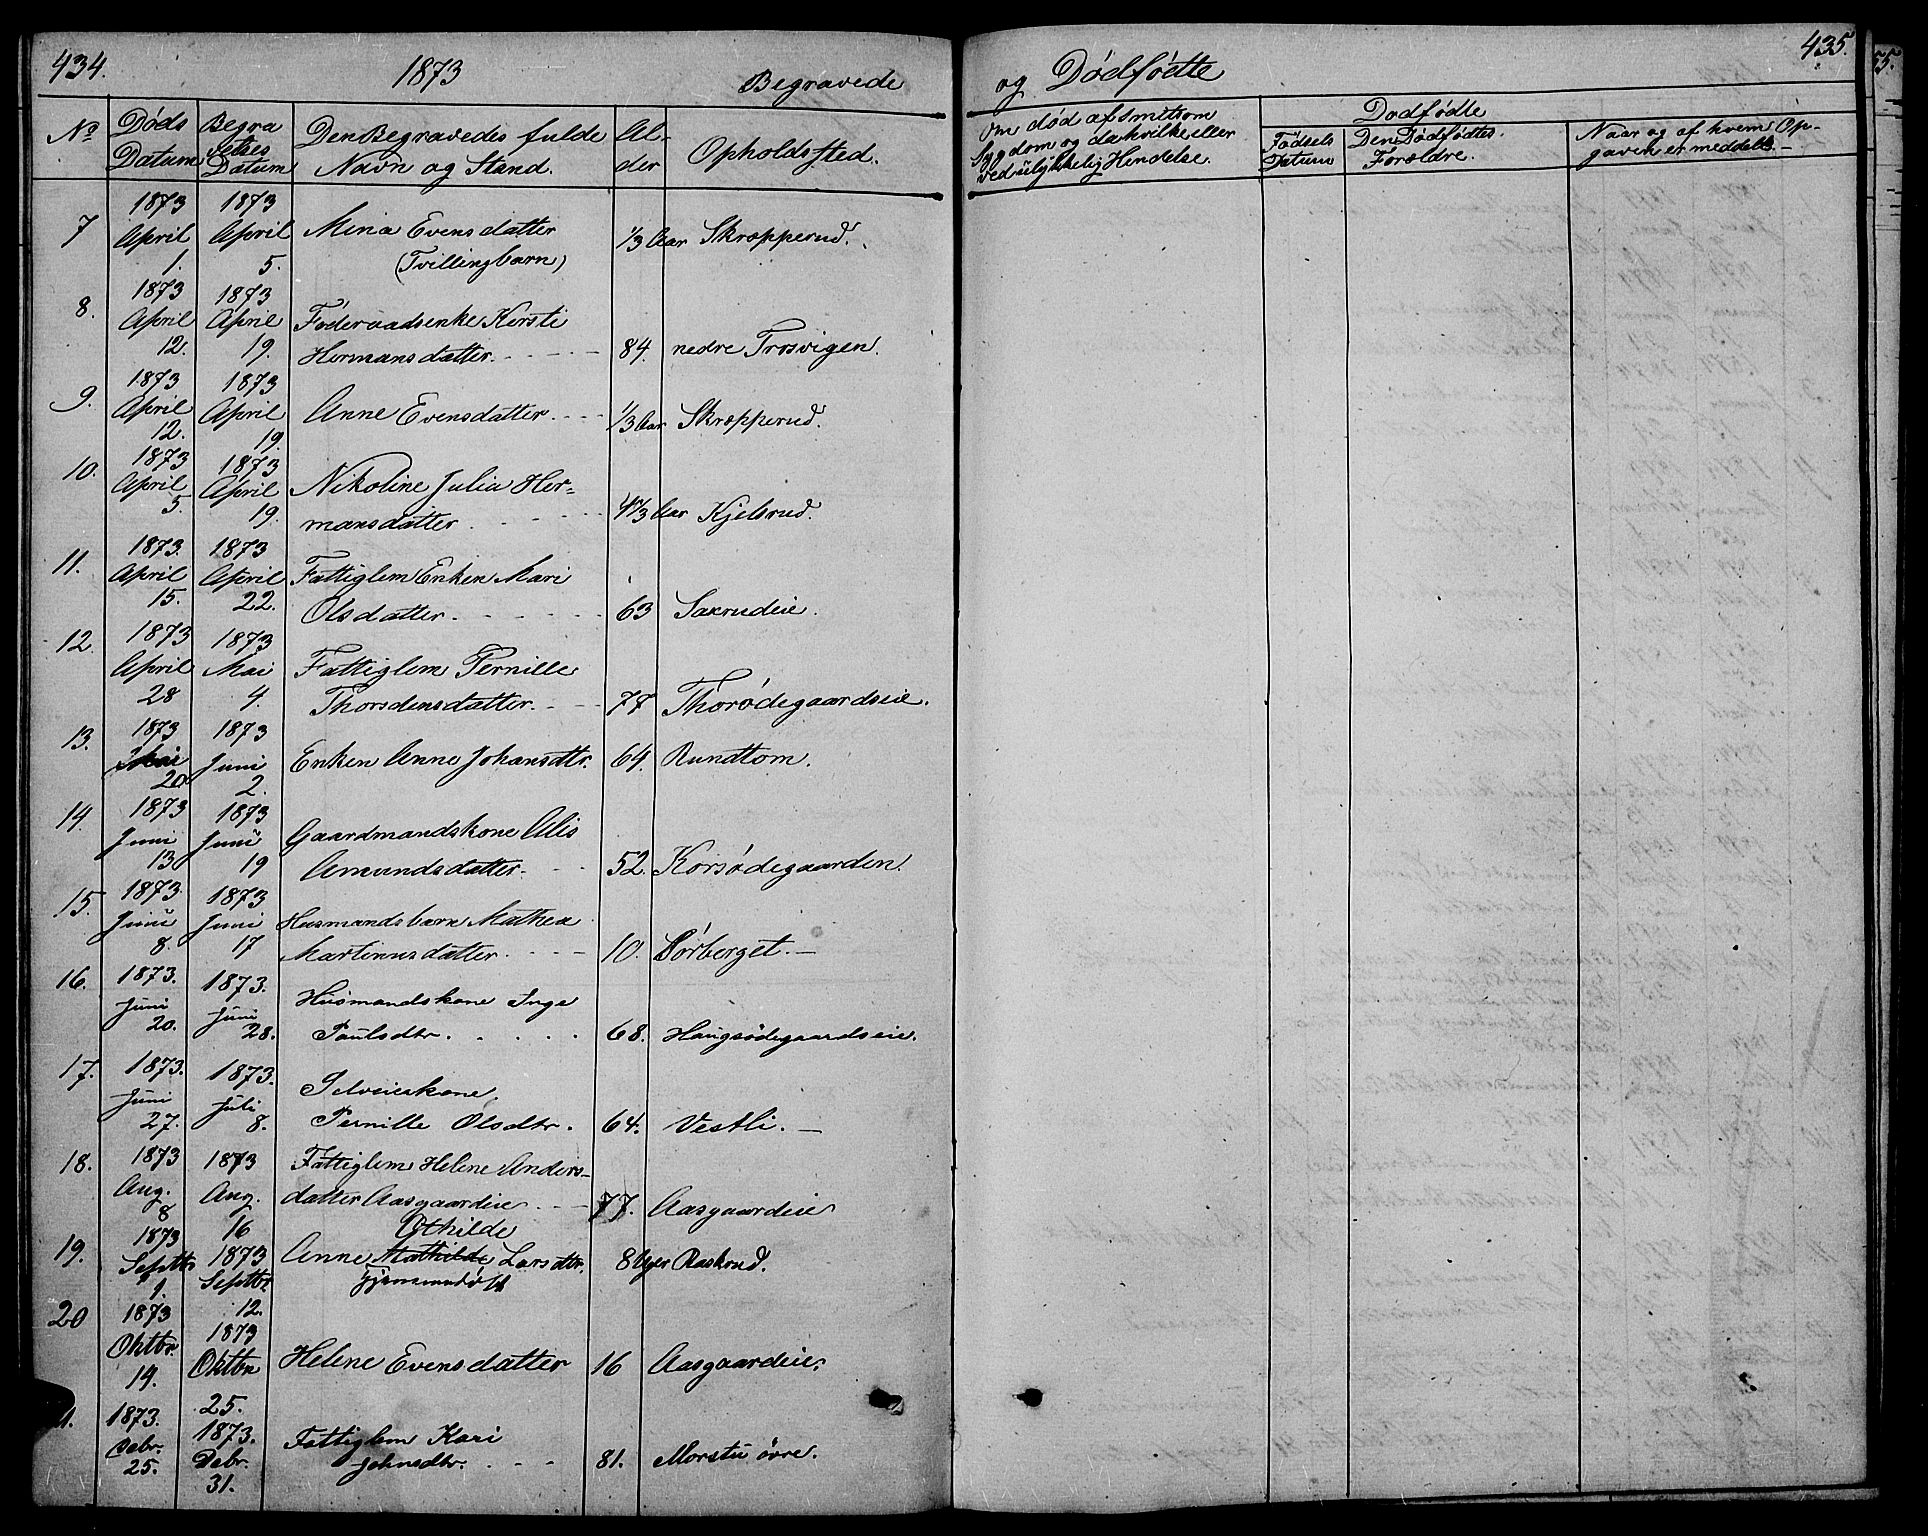 434.
1873
Begravede
No
Døds
Datum
Begra
velses
Datum
Den Begravedes fulde
Navn og Stand.
Al-
der
Opholdssted.
7
1873
April
1.
1873
April
5.
Mina Evensdatter
(Tvillingbarn)
1/3 Aar
Skrapperud.
8.
1873
April
12.
1873
April
19.
Føderaadsenke Kersti
Hermansdatter.
84.
nedre Trosvigen.
9.
1873
April
12.
1873
April
19.
Anne Evensdatter.
1/3 Aar
Skrapperud.
10.
1873
April
5.
1873
April
19.
Nikoline Julia Her-
mansdatter.
4 1/3 Aar
Kjelsrud.
11.
1873.
April
15.
1873
April
22.
Fattiglem Enken Mari
Olsdatter.
63
Saxrudeie.
12.
1873
April
28
1873
Mai
4.
Fattiglem Pernille
Thorsdensdatter.
77
Thorødegaardseie.
13.
1873
Mai
20.
1873
Juni
2.
Enken Anne Johansdtr.
64.
Rundtom.
14.
1873
Juni
13
1873
Juni
19
Gaardmandskone Alis
Amundsdatter.
52.
Korsødegaarden.
15.
1873.
Juni
8.
1873
Juni
17
Husmandsbarn Mathea
Martinusdatter.
10.
Sørberget.—
16.
1873.
Juni
20.
1873.
Juni
28.
Husmandskone Inge
Paulsdtr.
68.
Haugsødegaardseie.
17.
1873.
Juni
27.
1873.
Juli
8.
Selveierskone.
Pernille Olsdtr.
64.
Vestli.—
18.
1873
Aug.
8
1873
Aug.
16
Fattiglem Helene Anders-
datter Aasgaardeie
77.
Aasgaardeie
19.
1873
Septbr
1.
1873
Septbr.
12.
Othilde
Anne Mathilde Larsdtr.
Raskrud.
20
1873
Oktbr.
14.
1873
Oktbr
25.
Helene Evensdatter
16
Aasgaardeie.
1.
1873.
Debr.
25.
1873.
Debr.
31.
Fattiglem Kari
Johnsdtr.
81.
Morstu øvre.
435.
og Dødfødte
Om død af smitsom
Sygdom og da hvilke eller
ved ulykkelig Hendelse.
Dødfødte
Fødsels
Datum
Den Dødfødtes
Forældre.
Naar og af hvem Op-
gaven er meddelt.—